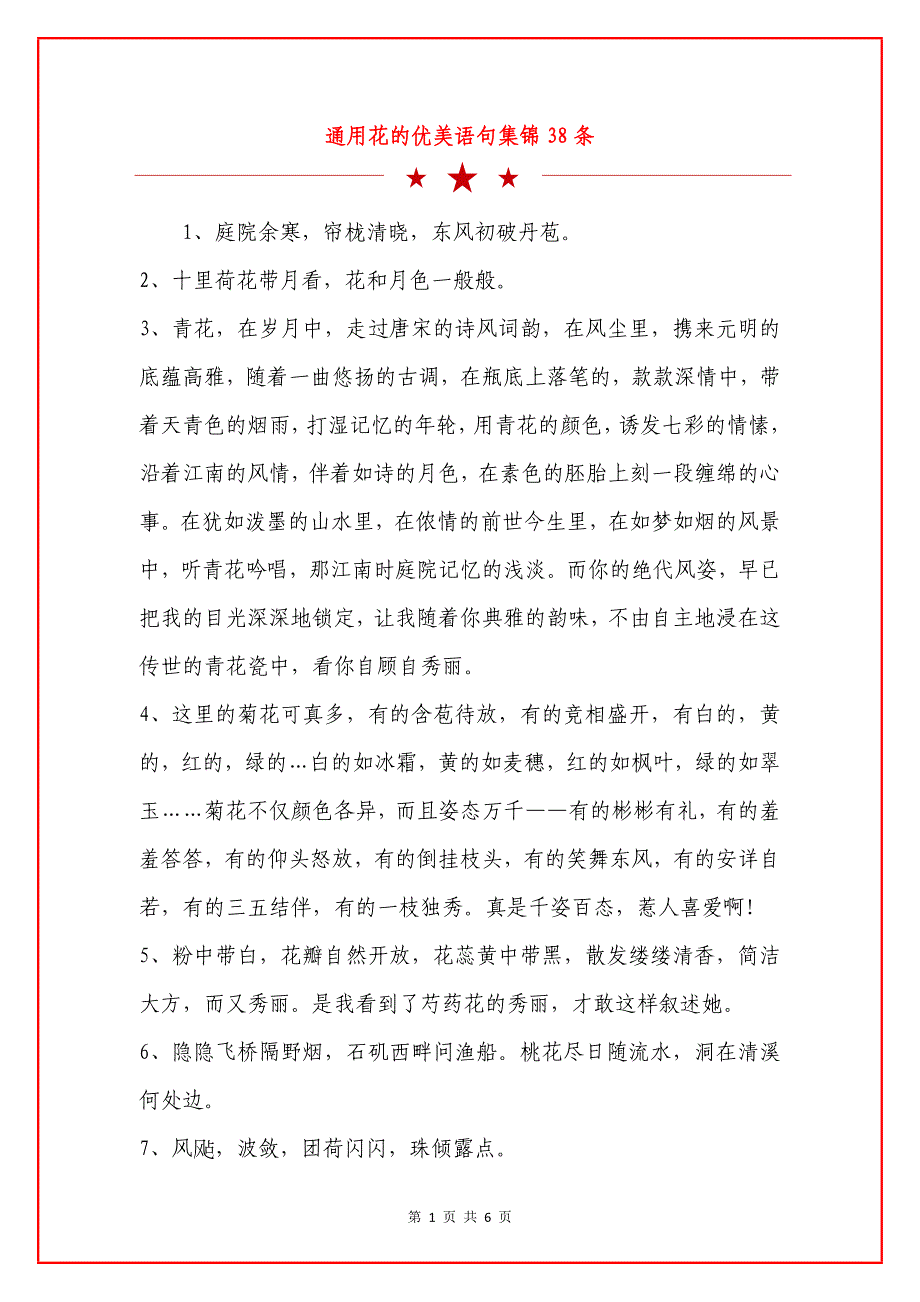 通用花的优美语句集锦 38 条
1、庭院余寒，帘栊清晓，东风初破丹苞。
2、十里荷花带月看，花和月色一般般。
3、青花，在岁月中，走过唐宋的诗风词韵，在风尘里，携来元明的
底蕴高雅，随着一曲悠扬的古调，在瓶底上落笔的，款款深情中，带
着天青色的烟雨，打湿记忆的年轮，用青花的颜色，诱发七彩的情愫，
沿着江南的风情，伴着如诗的月色，在素色的胚胎上刻一段缠绵的心
事。在犹如泼墨的山水里，在侬情的前世今生里，在如梦如烟的风景
中，听青花吟唱，那江南时庭院记忆的浅淡。而你的绝代风姿，早已
把我的目光深深地锁定，让我随着你典雅的韵味，不由自主地浸在这
传世的青花瓷中，看你自顾自秀丽。
4、这里的菊花可真多，有的含苞待放，有的竞相盛开，有白的，黄
的，红的，绿的…白的如冰霜，黄的如麦穗，红的如枫叶，绿的如翠
玉……菊花不仅颜色各异，而且姿态万千——有的彬彬有礼，有的羞
羞答答，有的仰头怒放，有的倒挂枝头，有的笑舞东风，有的安详自
若，有的三五结伴，有的一枝独秀。真是千姿百态，惹人喜爱啊！
5、粉中带白，花瓣自然开放，花蕊黄中带黑，散发缕缕清香，简洁
大方，而又秀丽。是我看到了芍药花的秀丽，才敢这样叙述她。
6、隐隐飞桥隔野烟，石矶西畔问渔船。桃花尽日随流水，洞在清溪
何处边。
7、风飐，波敛，团荷闪闪，珠倾露点。
第 1 页 共 6 页